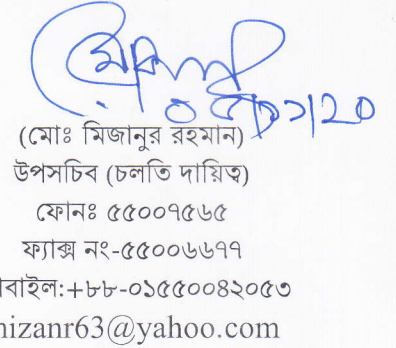 (মোঃ মিজানুর রহমান)
উপসচিব (চলতি দায়িত্ব)
ফোনঃ ৫৫০০৭৫৬৫
ফ্যাক্স নং-৫৫০০৬৬৭৭
বাইল:+৮৮-০১৫৫০০৪২০৫৩
mizanr63@yahoo.com